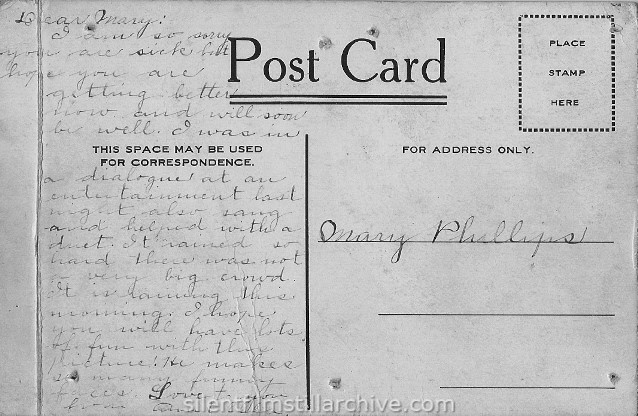 Dear Mary:
I am so sorry
you are sick but
hope you are
getting better
now and will soon
be well. I was in
Post Card
PLACE
STAMP
HERE
THIS SPACE MAY BE USED
FOR CORRESPONDENCE.
FOR ADDRESS ONLY.
a dialogue at an
entertainment last
night also sang
and helped with a
duet. It rained so
hard there was not
a very big crowd.
It is raining this
morning. I hope
you will have lots
of fun with this
picture. He makes
so many funny
faces. Love to you
from
Mary Phillips
silentfilmstillarchive.com